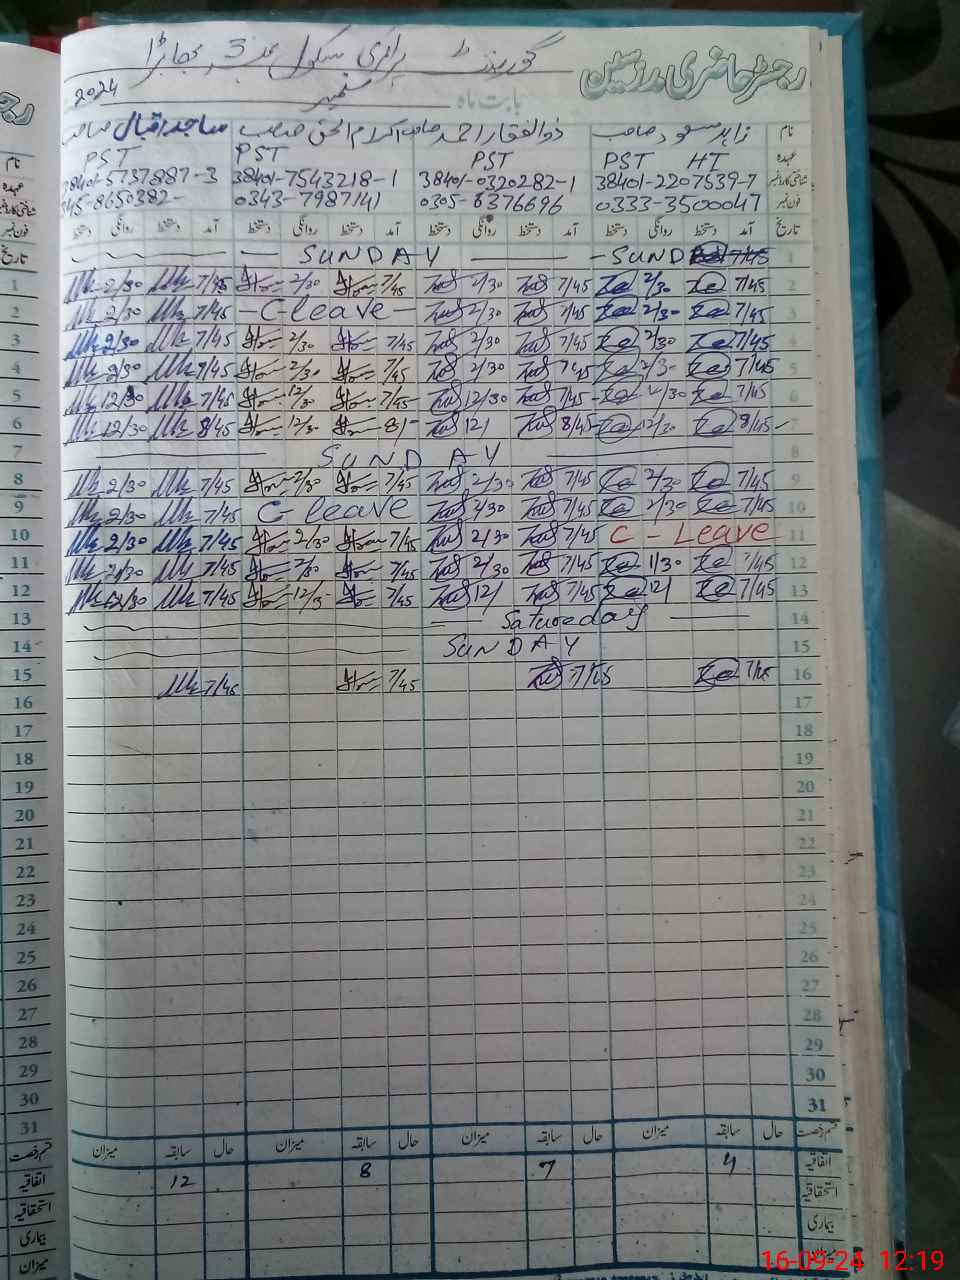 گورنمنٹ پرائمری سکول نمبر 3 بجاڑا
رجسٹر حاضری مدرسین
2024 ستمبر بابت ماہ
نام زاہد مسعود صاحب ذوالفقار احمد صاحب اکرام الحق صاحب ساجد اقبال صاحب
عہدہ PST HT PST PST PST
شناختی کارڈ نمبر 38401-2207539-7 38401-0320282-1 38401-7543218-1 38401-5737887-3
فون نمبر 0333-3500047 0305-6376696 0343-7987141 345-8650382
تاریخ آمد دستخط روانگی دستخط آمد دستخط روانگی دستخط آمد دستخط روانگی دستخط آمد دستخط روانگی دستخط
SUNDAY SUND 1
2/30 7/45 2/30 7/45 2/30 7/45 2/30 7/45 2
2/30 7/45 C-leave 2/30 7/45 2/30 7/45 3
2/30 7/45 2/30 7/45 2/30 7/45 2/30 7/45 4
2/30 7/45 2/30 7/45 2/30 7/45 2/3 7/45 5
12/30 7/45 12/30 7/45 12/30 7/45 12/30 7/45 6
12/30 8/45 12/30 8/ 12/ 8/45 12/30 8/45 7
SUNDAY 8
2/30 7/45 2/30 7/45 2/30 7/45 2/30 7/45 9
2/30 7/45 C-leave 2/30 7/45 2/30 7/45 10
2/30 7/45 2/30 7/45 2/30 7/45 C-Leave 11
2/30 7/45 2/30 7/45 2/30 7/45 1/30 7/45 12
12/30 7/45 12/3 7/45 12/ 7/45 12/ 7/45 13
Satureday 14
SUNDAY 15
7/45 7/45 7/45 7/45 16
17
18
19
20
21
22
23
24
25
26
27
28
29
30
31
قسم رخصت حال سابقہ میزان حال سابقہ میزان حال سابقہ میزان حال سابقہ میزان
اتفاقیہ 4 7 8 12
استحقاقیہ
بیماری
میزان
نام
عہدہ
شناختی کارڈ نمبر
فون نمبر
تاریخ
1
2
3
4
5
6
7
8
9
10
11
12
13
14
15
16
17
18
19
20
21
22
23
24
25
26
27
28
29
30
31
قسم رخصت
اتفاقیہ
استحقاقیہ
بیماری
میزان
16-09-24 12:19